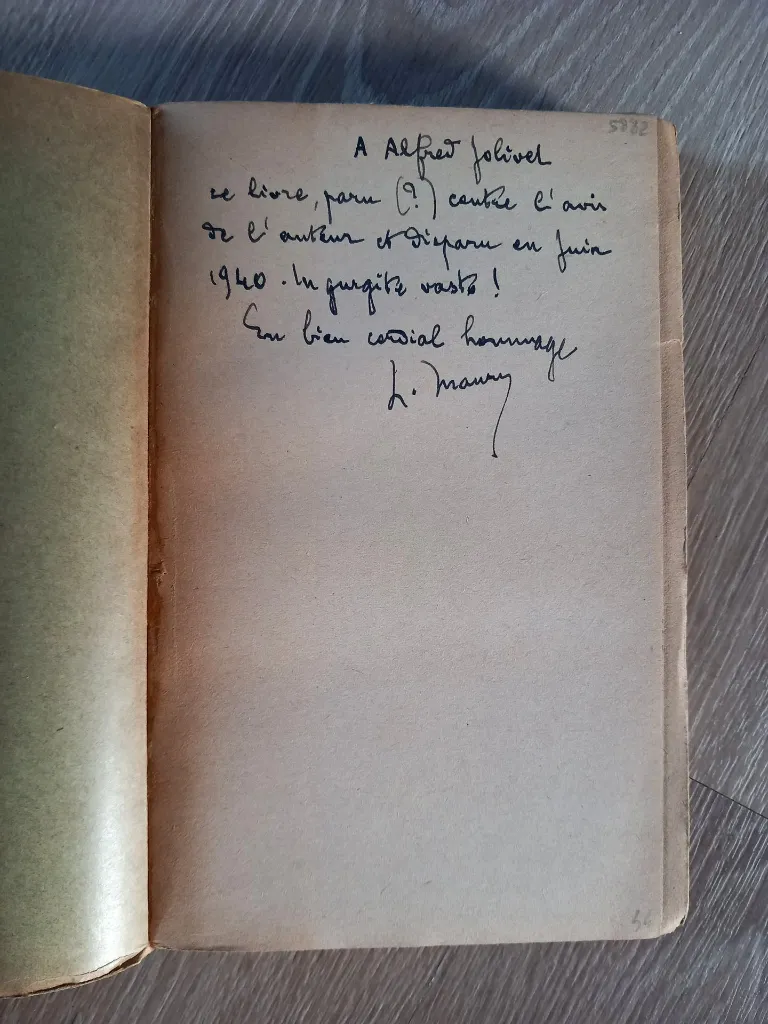 5882
A Alfred Jolivet
ce livre, paru (?) contre l'avis
de l'auteur et disparu en Juin
1940. In gurgite vasto !
En bien cordial hommage
L. Maury